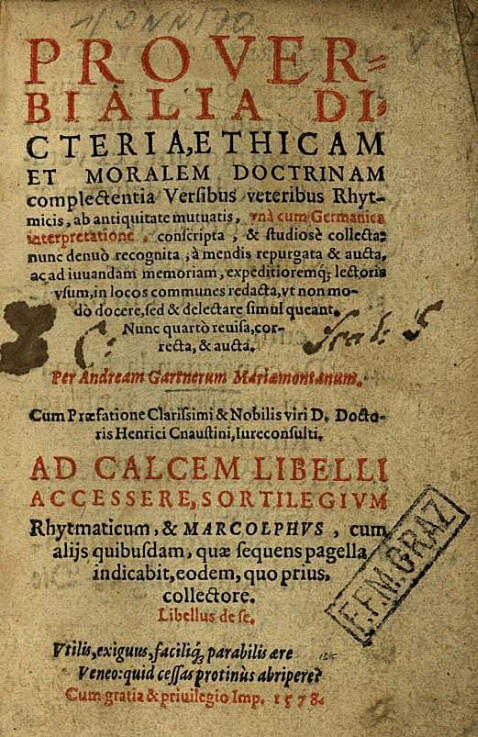 PROVER⸗
BIALIA DI⸗
CTERIA, ETHICAM
ET MORALEM DOCTRINAM
complectentia Versibus veteribus Rhyt-
micis, ab antiquitate mutuatis, vnà cum Germanica
interpretatione, conscripta, & studiosè collecta:
nunc denuò recognita, à mendis repurgata & aucta,
ac ad iuuandam memoriam, expeditioremq; lectoris
vsum, in locos communes redacta, vt non mo-
dò docere, sed & delectare simul queant.
Nunc quartò reuisa, cor-
recta, & aucta.
Per Andream Gartnerum Mariæmontanum.
Cum Præfatione Clarissimi & Nobilis viri D. Docto-
ris Henrici Cnaustini, Iureconsulti.
AD CALCEM LIBELLI
ACCESSERE, SORTILEGIVM
Rhytmaticum, & MARCOLPHVS, cum
alijs quibusdam, quæ sequens pagella
indicabit, eodem, quo prius,
collectore.
Libellus de se.
Vtilis, exiguus, faciliq; parabilis ære
Veneo: quid cessas protinùs abripere?
Cum gratia & priuilegio Imp. 1578.
F.F.M.GRAZ